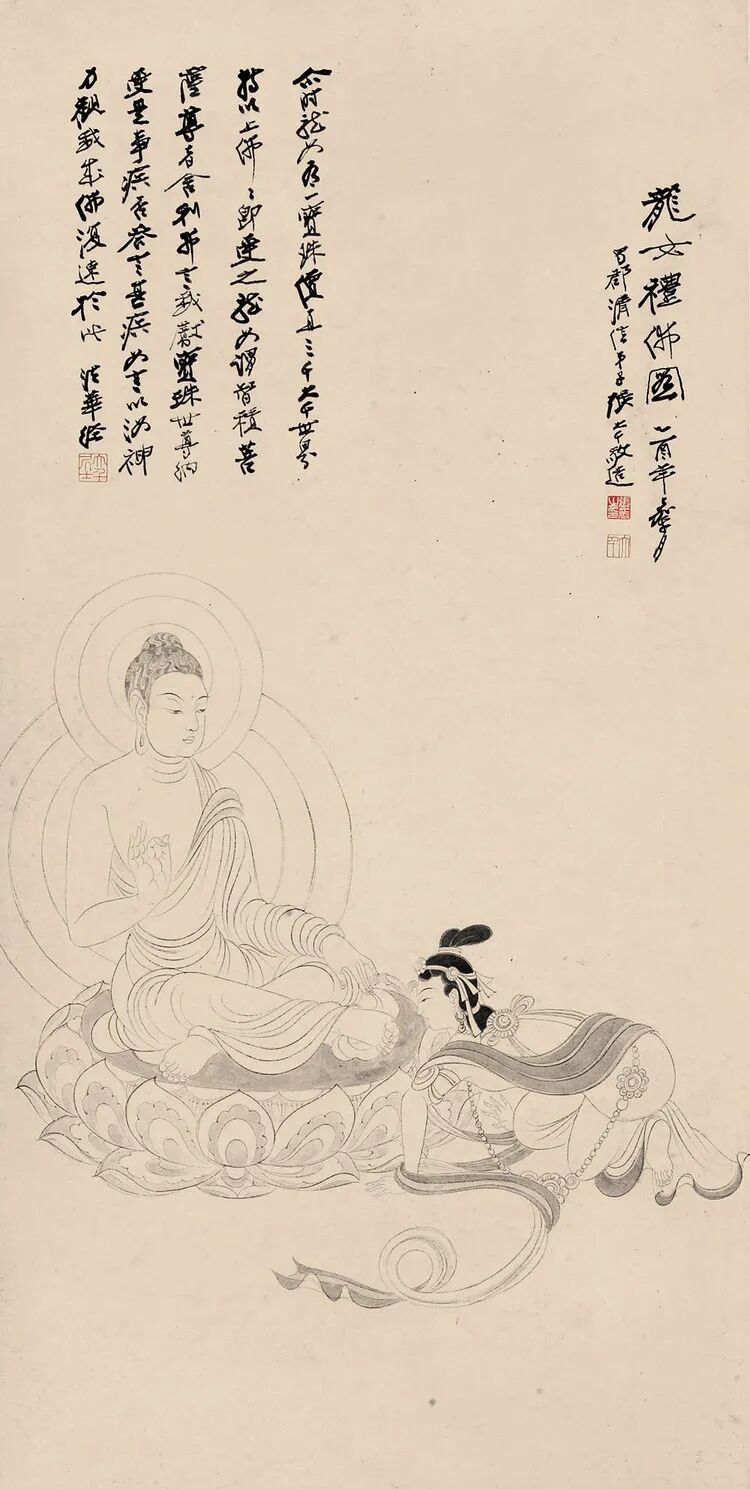 龍女禮佛圖 乙酉年 月
蜀郡清信弟子張大千敬造
張爰之印
大千
尒時龍女有一寶珠價直三千大千世界
持以上佛〻即受之龍女謂智積菩
薩尊者舍利弗言我獻寶珠世尊納
受是事疾否答言甚疾女言以汝神
力觀我成佛復速於此 法華經
大千居士